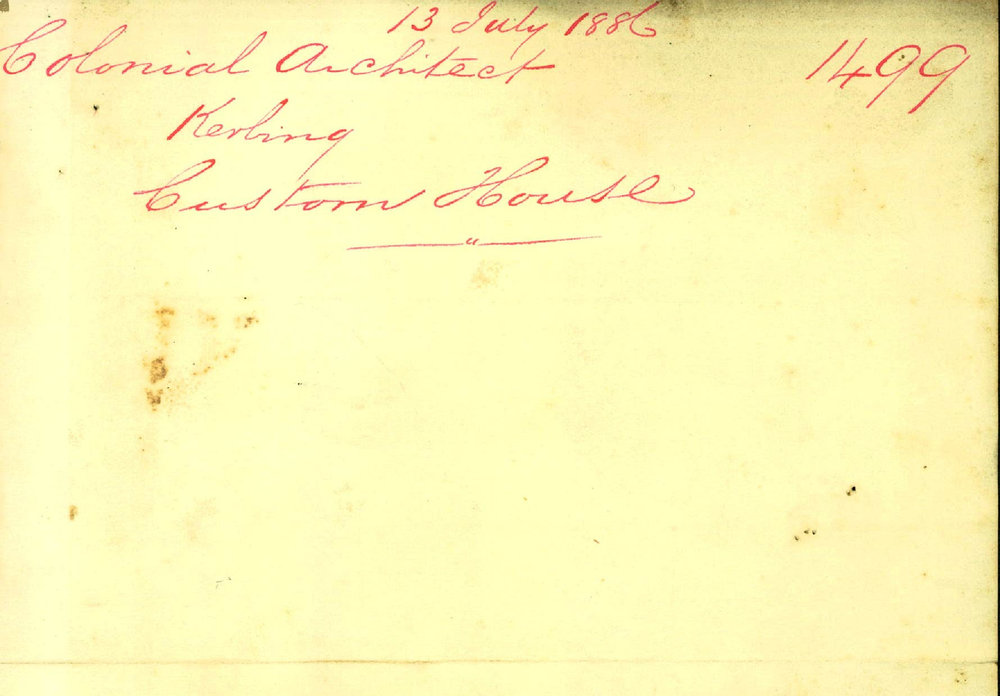 13 July 1886
Colonial Architect 1499
Kerbing
Custom House
"